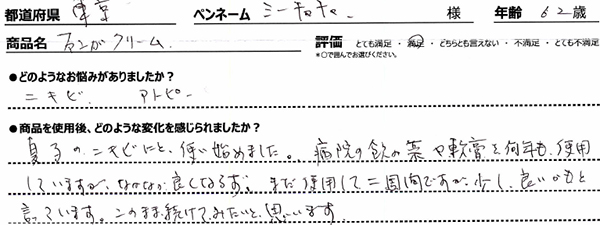 都道府県 東京 ペンネーム ミーチャチャ 様 年齢 62歳
商品名 クリーム 評価 とても満足 ・ 満足 ・ どちらとも言えない ・ 不満足 ・ とても不満足
*○で囲んでお選びください。
●どのようなお悩みがありましたか？
ニキビ、 アトピー
●商品を使用後、どのような変化を感じられましたか？
息子のニキビにと、使い始めました。病院の飲み薬や軟膏を何年も、使用
していますが、なかなか良くならず、まだ使用して二週間ですが、少し、良いかもと
言っています。このまま続けてみたいと思います